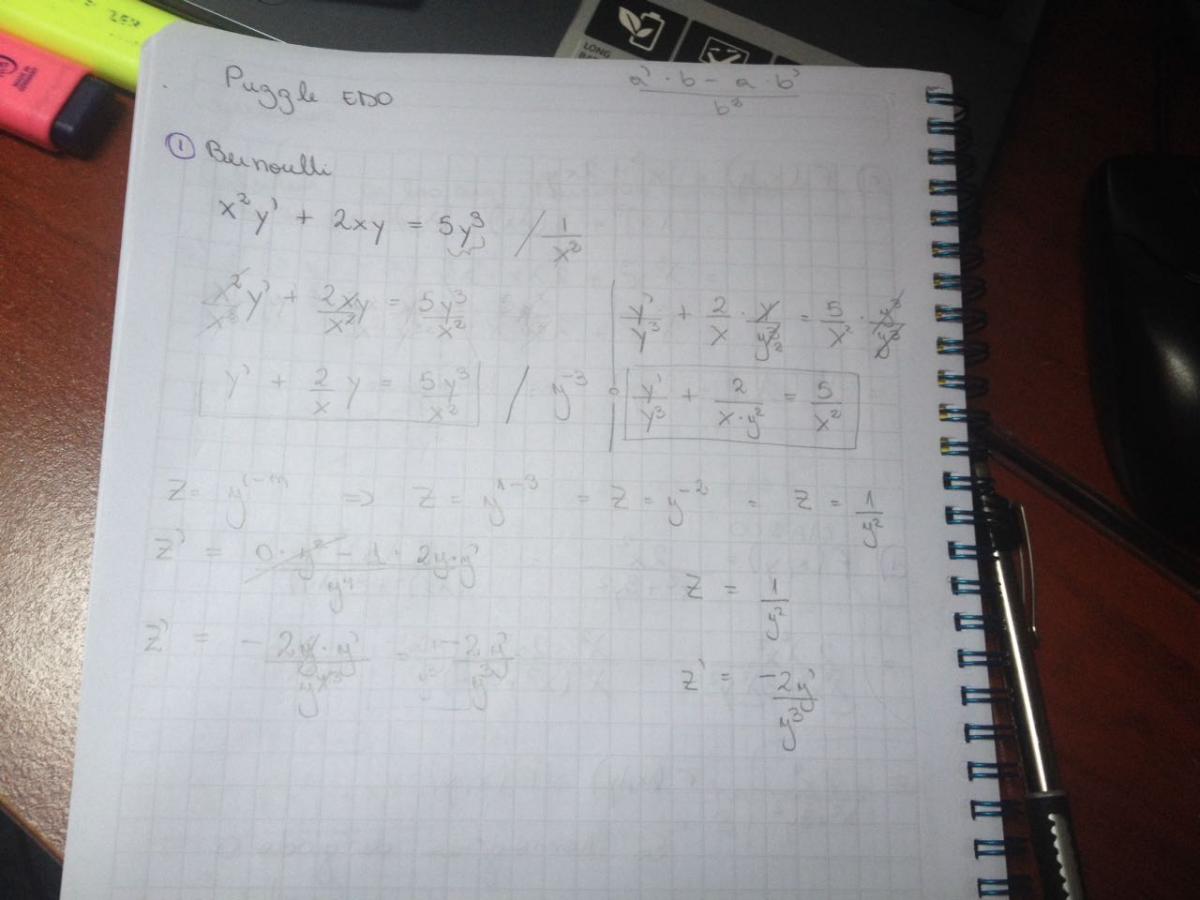 Puzzle EDO
a' · b - a · b' / b²
① Bernoulli
x²y' + 2xy = 5y³ / 1/x²
x²/x² y' + 2xy/x² = 5y³/x²
y' + 2/x y = 5y³/x² / y⁻³
y'/y³ + 2/x · y/y³ = 5/x² · y³/y³
y'/y³ + 2/(x·y²) = 5/x²
z = y¹⁻ⁿ ⇒ z = y¹⁻³ = z = y⁻² = z = 1/y²
z' = (0 · y² - 1 · 2y·y')/y⁴
z' = - 2y·y'/y⁴ = -2y'/y³
z = 1/y²
z' = -2y'/y³
LONG